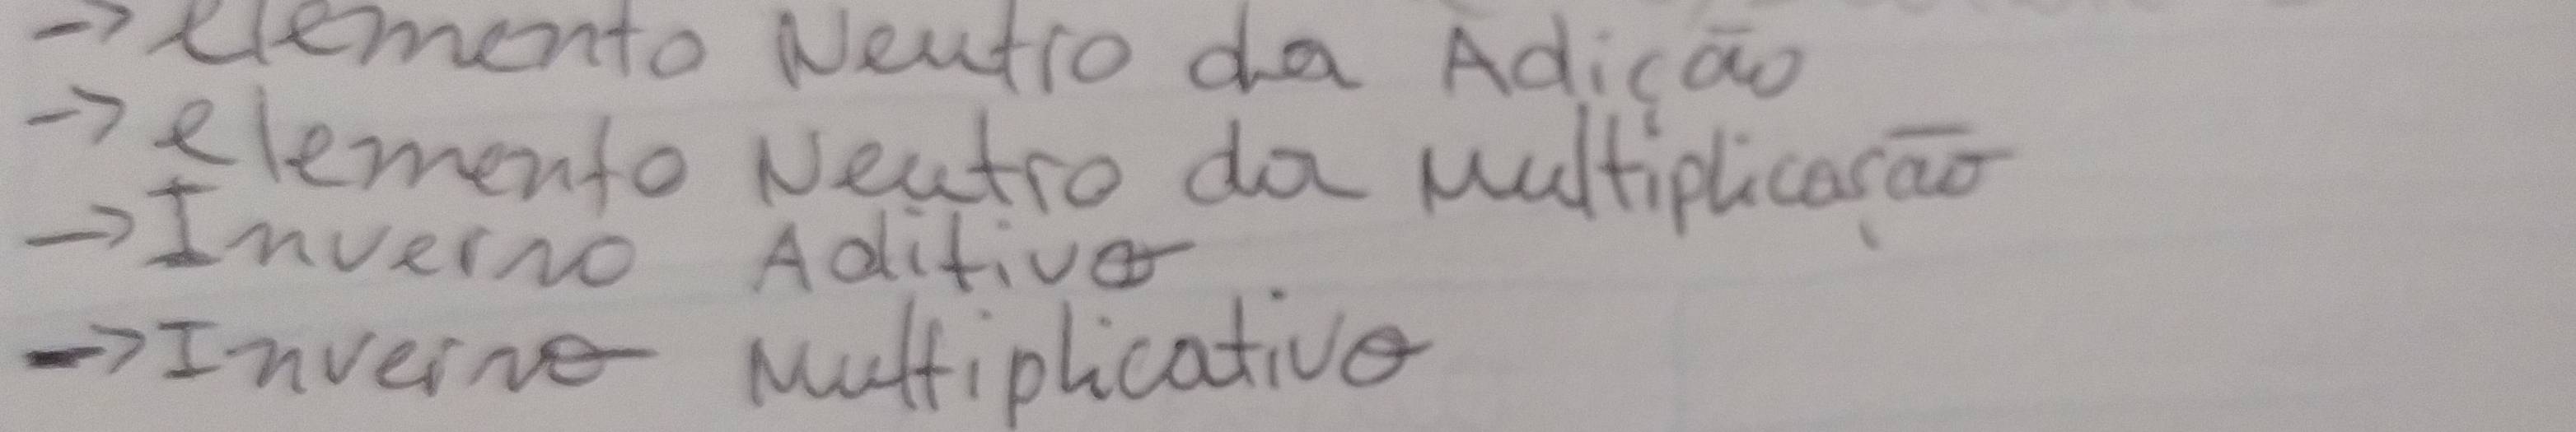 -> elemento Neutro da Adição
-> elemento Neutro da Multiplicação
-> Inverno Aditivo
-> Inverno Multiplicativo